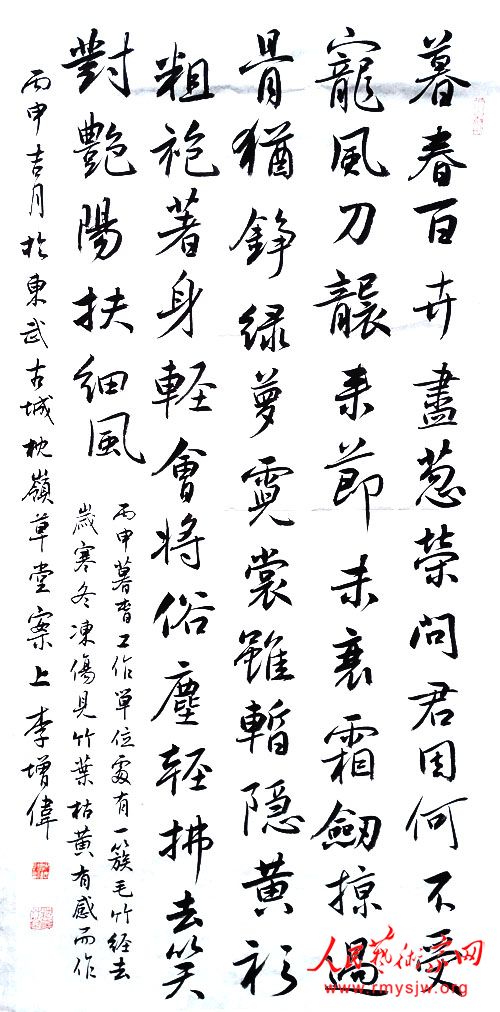 暮春百卉盡葱荣問君因何不受
寵風刀襲来節未衰霜劔掠過
骨猶錚緑萝霓裳雖暫隐黄衫
粗袍著身軽會将俗塵轻拂去笑
對艷陽扶细風
丙申暮春工作单位処有一簇毛竹经去
歲寒冬凍傷見竹葉枯黄有感而作
丙申吉月於東武古城枕嶺草堂案上李增偉
人民藝術家网
www.rmysjw.org